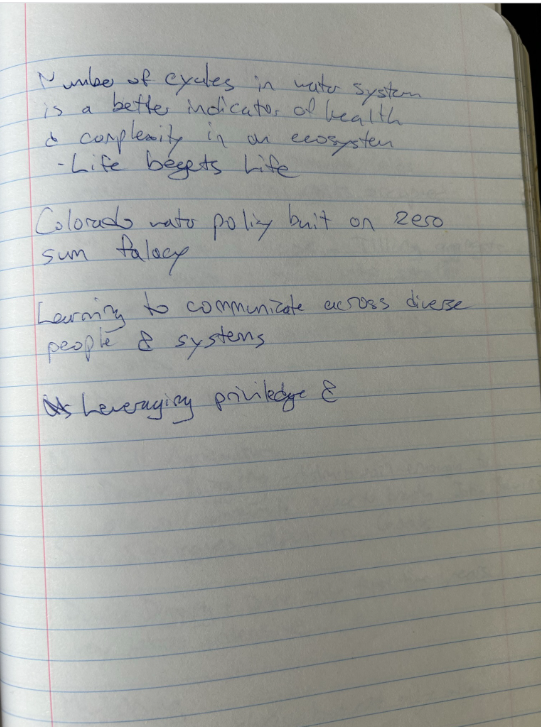 Number of cycles in water system
is a better indicator of health
& complexity in an ecosystem
- Life begets Life
Colorado water policy built on zero
sum falacy
Learning to communicate across diverse
people & systems
Leveraging priviledge &